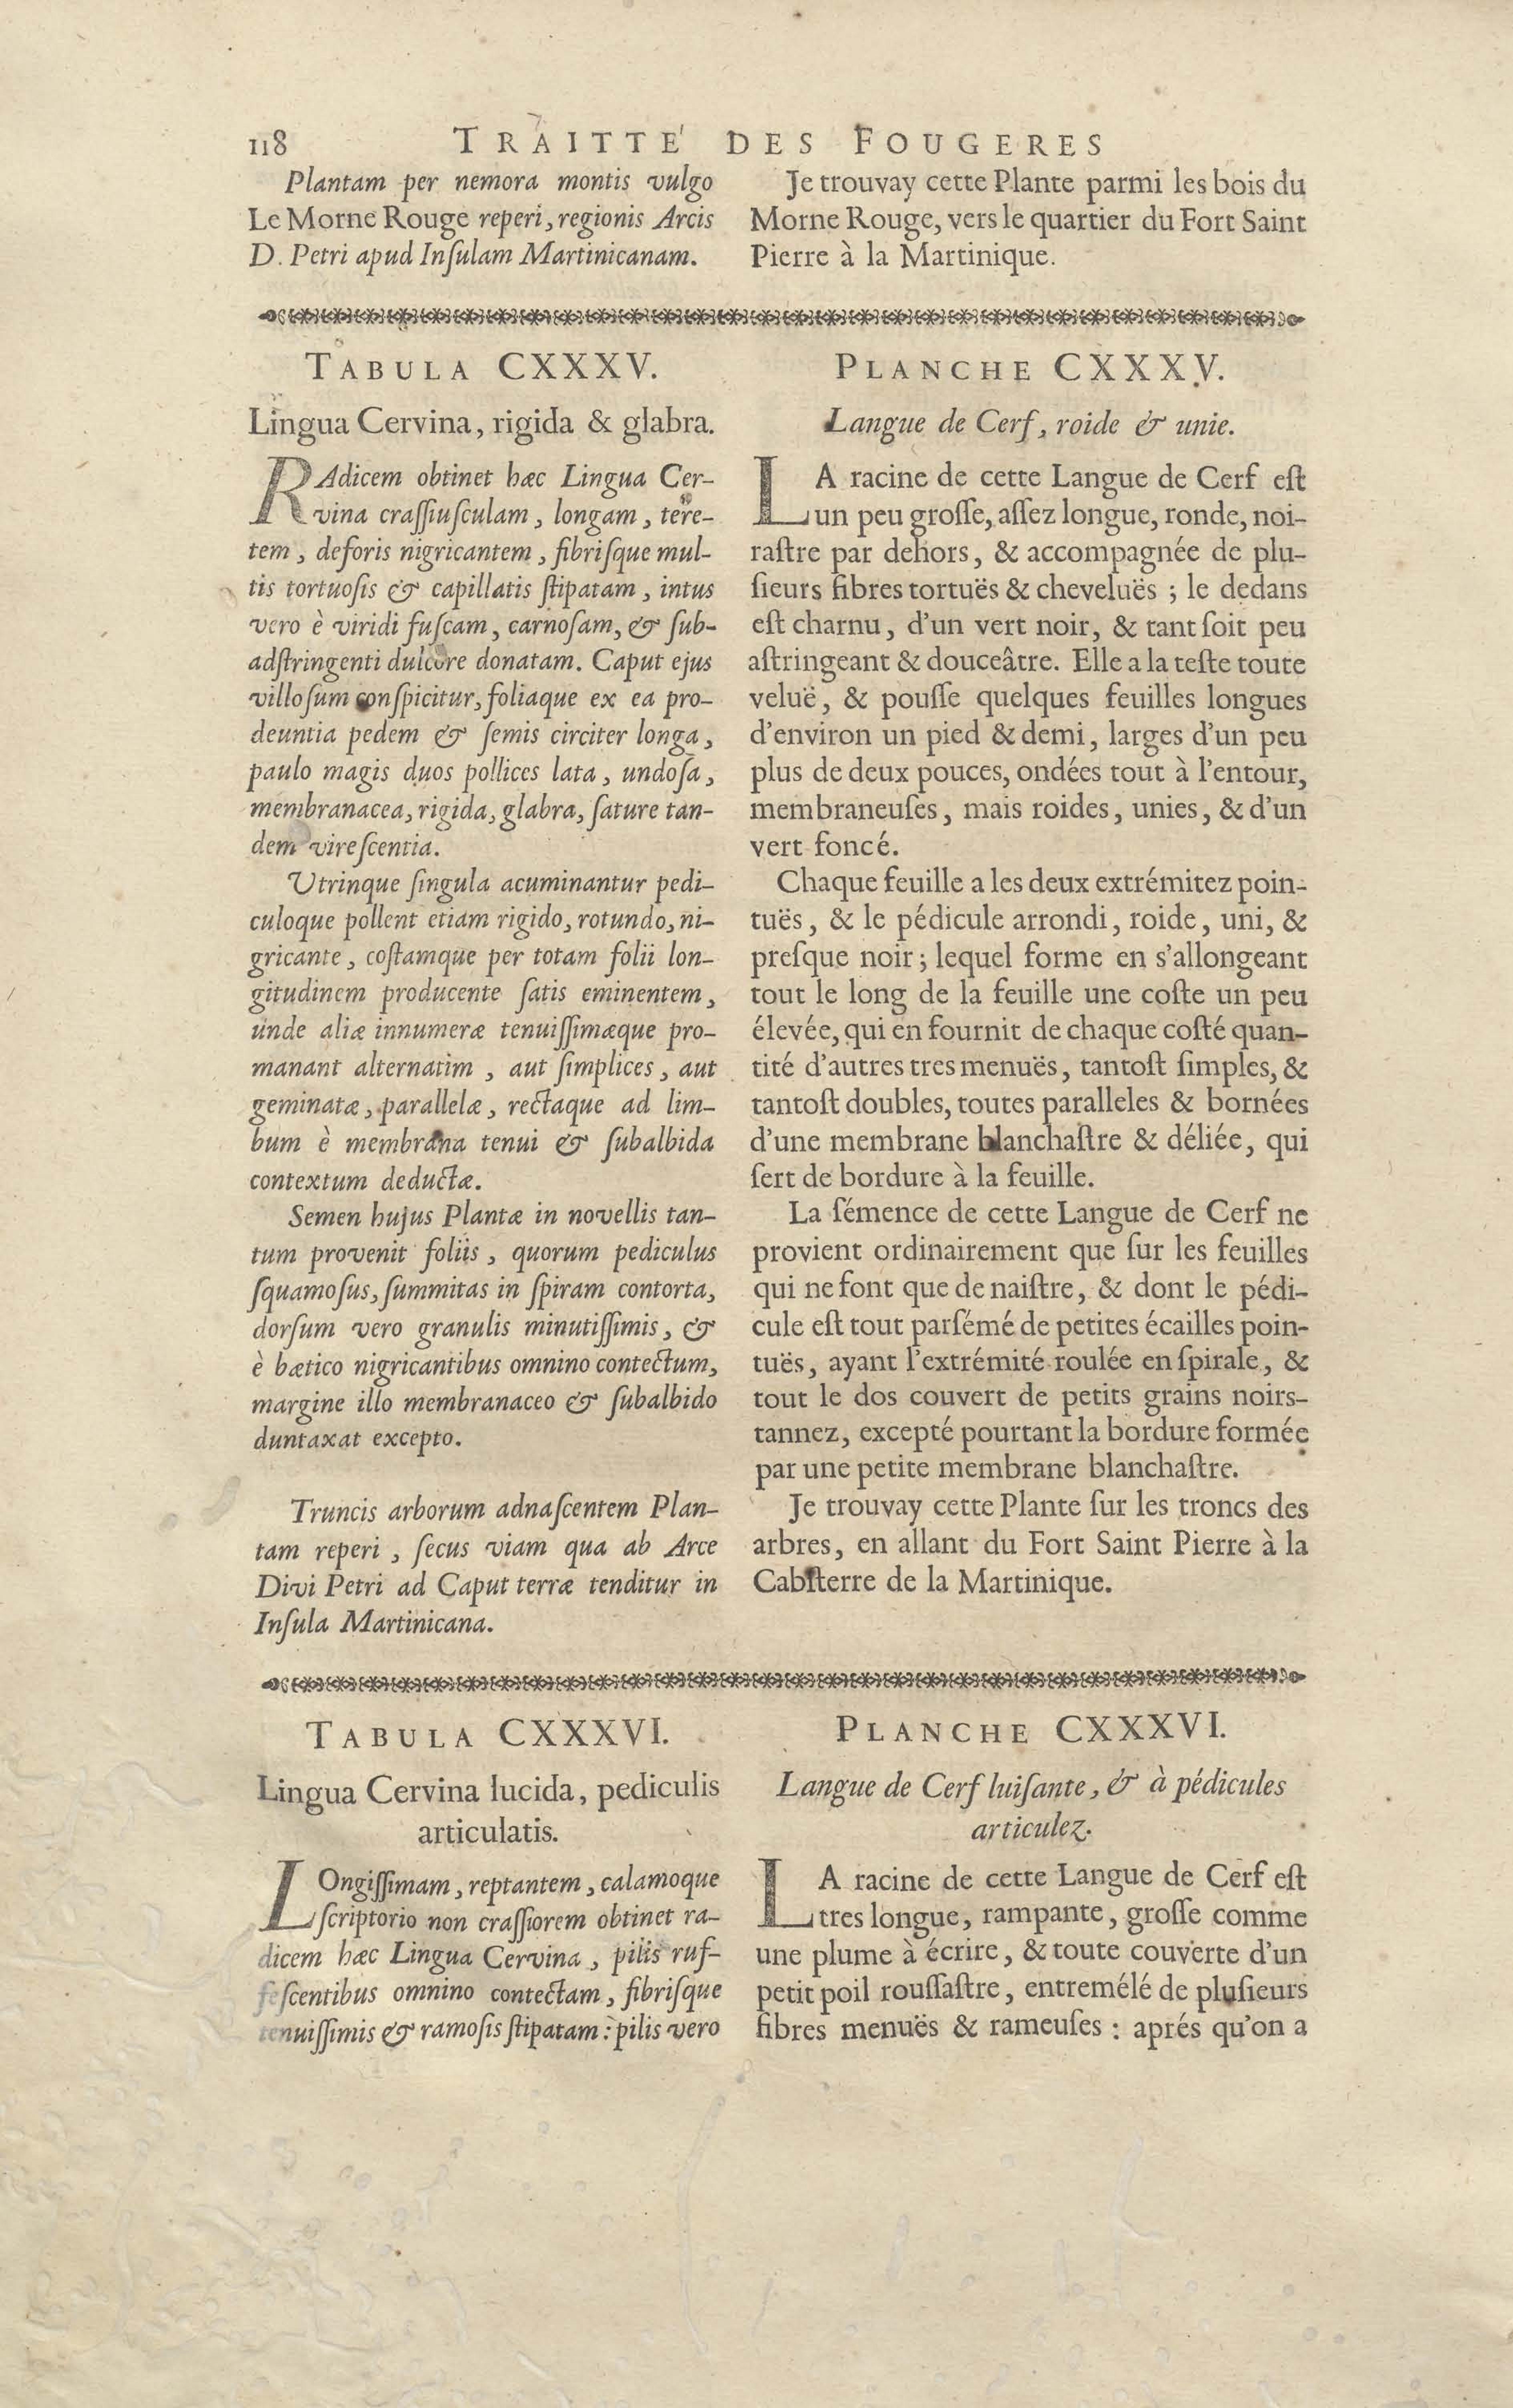 118 TRAITTE' DES FOUGERES
Plantam per nemora montis vulgo
Le Morne Rouge reperi, regionis Arcis
D. Petri apud Inſulam Martinicanam.
Je trouvay cette Plante parmi les bois du
Morne Rouge, vers le quartier du Fort Saint
Pierre à la Martinique.
TABULA CXXXV.
Lingua Cervina, rigida & glabra.
RAdicem obtinet hæc Lingua Cer-
vina craſſiuſculam, longam, tere-
tem, deforis nigricantem, fibriſque mul-
tis tortuoſis & capillatis ſtipatam, intus
vero è viridi fuſcam, carnoſam, & ſub-
adſtringenti dulcore donatam. Caput ejus
villoſum conſpicitur, foliaque ex ea pro-
deuntia pedem & ſemis circiter longa,
paulo magis duos pollices lata, undoſa,
membranacea, rigida, glabra, ſature tan-
dem vireſcentia.
Utrinque ſingula acuminantur pedi-
culoque pollent etiam rigido, rotundo, ni-
gricante, coſtamque per totam folii lon-
gitudinem producente ſatis eminentem,
unde aliæ innumeræ tenuiſſimæque pro-
manant alternatim, aut ſimplices, aut
geminatæ, parallelæ, rectaque ad lim-
bum è membrana tenui & ſubalbida
contextum deductæ.
Semen hujus Plantæ in novellis tan-
tum provenit foliis, quorum pediculus
ſquamoſus, ſummitas in ſpiram contorta,
dorſum vero granulis minutiſſimis, &
è bætico nigricantibus omnino contectum,
margine illo membranaceo & ſubalbido
duntaxat excepto.
Truncis arborum adnaſcentem Plan-
tam reperi, ſecus viam qua ab Arce
Divi Petri ad Caput terræ tenditur in
Inſula Martinicana.
PLANCHE CXXXV.
Langue de Cerf, roide & unie.
LA racine de cette Langue de Cerf eſt
un peu groſſe, aſſez longue, ronde, noi-
raſtre par dehors, & accompagnée de plu-
ſieurs fibres tortuës & cheveluës ; le dedans
eſt charnu, d'un vert noir, & tant ſoit peu
aſtringeant & douceâtre. Elle a la teſte toute
veluë, & pouſſe quelques feuilles longues
d'environ un pied & demi, larges d'un peu
plus de deux pouces, ondées tout à l'entour,
membraneuſes, mais roides, unies, & d'un
vert foncé.
Chaque feuille a les deux extrémitez poin-
tuës, & le pédicule arrondi, roide, uni, &
preſque noir ; lequel forme en s'allongeant
tout le long de la feuille une coſte un peu
élevée, qui en fournit de chaque coſté quan-
tité d'autres tres menuës, tantoſt ſimples, &
tantoſt doubles, toutes paralleles & bornées
d'une membrane blanchaſtre & déliée, qui
ſert de bordure à la feuille.
La ſémence de cette Langue de Cerf ne
provient ordinairement que ſur les feuilles
qui ne font que de naiſtre, & dont le pédi-
cule eſt tout parſémé de petites écailles poin-
tuës, ayant l'extrémité roulée en ſpirale, &
tout le dos couvert de petits grains noirs-
tannez, excepté pourtant la bordure formée
par une petite membrane blanchaſtre.
Je trouvay cette Plante ſur les troncs des
arbres, en allant du Fort Saint Pierre à la
Cabſterre de la Martinique.
TABULA CXXXVI.
Lingua Cervina lucida, pediculis
articulatis.
LOngiſſimam, reptantem, calamoque
ſcriptorio non craſſiorem obtinet ra-
dicem hæc Lingua Cervina, pilis ruf-
feſcentibus omnino contectam, fibriſque
tenuiſſimis & ramoſis ſtipatam : pilis vero
PLANCHE CXXXVI.
Langue de Cerf luiſante, & à pédicules
articulez.
LA racine de cette Langue de Cerf eſt
tres longue, rampante, groſſe comme
une plume à écrire, & toute couverte d'un
petit poil rouſſaſtre, entremélé de pluſieurs
fibres menuës & rameuſes : aprés qu'on a